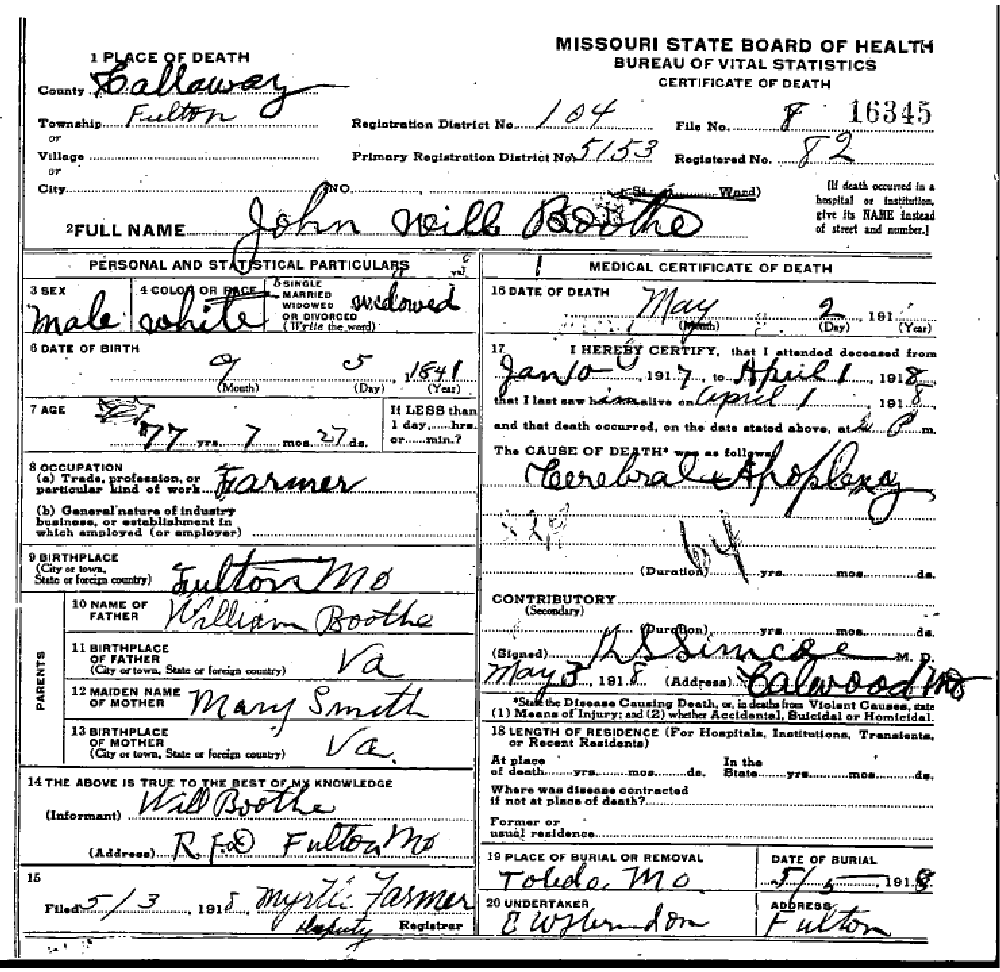 MISSOURI STATE BOARD OF HEALTH
BUREAU OF VITAL STATISTICS
CERTIFICATE OF DEATH
1 PLACE OF DEATH
County Callaway
Township Fulton
or
Village
or
City
Registration District No. 104
File No. 8 16345
Primary Registration District No. 5153
Registered No. 82
NO. St. Ward)
[If death occurred in a
hospital or institution,
give its NAME instead
of street and number.]
2 FULL NAME John Will Boothe
PERSONAL AND STATISTICAL PARTICULARS
3 SEX
male
4 COLOR OR RACE
white
5 SINGLE
MARRIED
WIDOWED
OR DIVORCED
(Write the word)
widowed
6 DATE OF BIRTH
9 5 1841
(Month) (Day) (Year)
7 AGE
77 yrs. 7 mos. 27 ds.
If LESS than
1 day, hrs.
or min.?
8 OCCUPATION
(a) Trade, profession, or
particular kind of work Farmer
(b) General nature of industry
business, or establishment in
which employed (or employer)
9 BIRTHPLACE
(City or town,
State or foreign country) Fulton Mo
PARENTS
10 NAME OF
FATHER William Boothe
11 BIRTHPLACE
OF FATHER
(City or town, State or foreign country) Va
12 MAIDEN NAME
OF MOTHER Mary Smith
13 BIRTHPLACE
OF MOTHER
(City or town, State or foreign country) Va.
14 THE ABOVE IS TRUE TO THE BEST OF MY KNOWLEDGE
(Informant) Will Boothe
(Address) R.F.D Fulton Mo
15
Filed 5/3, 1918 Myrtie Farmer
Deputy Registrar
MEDICAL CERTIFICATE OF DEATH
16 DATE OF DEATH
May 2 191
(Month) (Day) (Year)
17 I HEREBY CERTIFY, that I attended deceased from
Jan 10 1917, to April 1 1918,
that I last saw him alive on April 1 1918,
and that death occurred, on the date stated above, at 2 P m.
The CAUSE OF DEATH* was as follows:
Cerebral Apoplexy
64
(Duration) yrs. mos. ds.
CONTRIBUTORY
(Secondary)
(Duration) yrs. mos. ds.
(Signed) Simcoe M. D.
May 3, 1918 (Address) Calwood Mo
*State the Disease Causing Death, or, in deaths from Violent Causes, state
(1) Means of Injury; and (2) whether Accidental, Suicidal or Homicidal.
18 LENGTH OF RESIDENCE (For Hospitals, Institutions, Transients,
or Recent Residents)
At place In the
of death yrs. mos. ds. State yrs. mos. ds.
Where was disease contracted
if not at place of death?
Former or
usual residence
19 PLACE OF BURIAL OR REMOVAL
Toledo, Mo.
DATE OF BURIAL
5/5, 1918
20 UNDERTAKER
Herndon
ADDRESS
Fulton